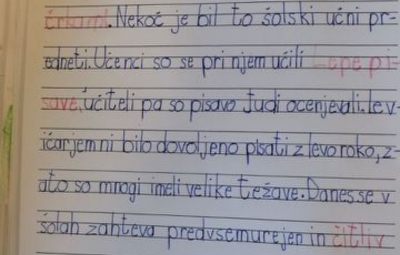 črkami. Nekoč je bil to šolski učni pr-
edmeti. Učenci so se pri njem učili Lepe pi-
save, učiteli pa so pisavo tudi ocenjevali. lev-
ičarjem ni bilo dovoljeno pisati z levo roko, z-
ato so mnogi imeli velike težave. Danes se v
šolah zahteva predvsem urejen in čitljiv